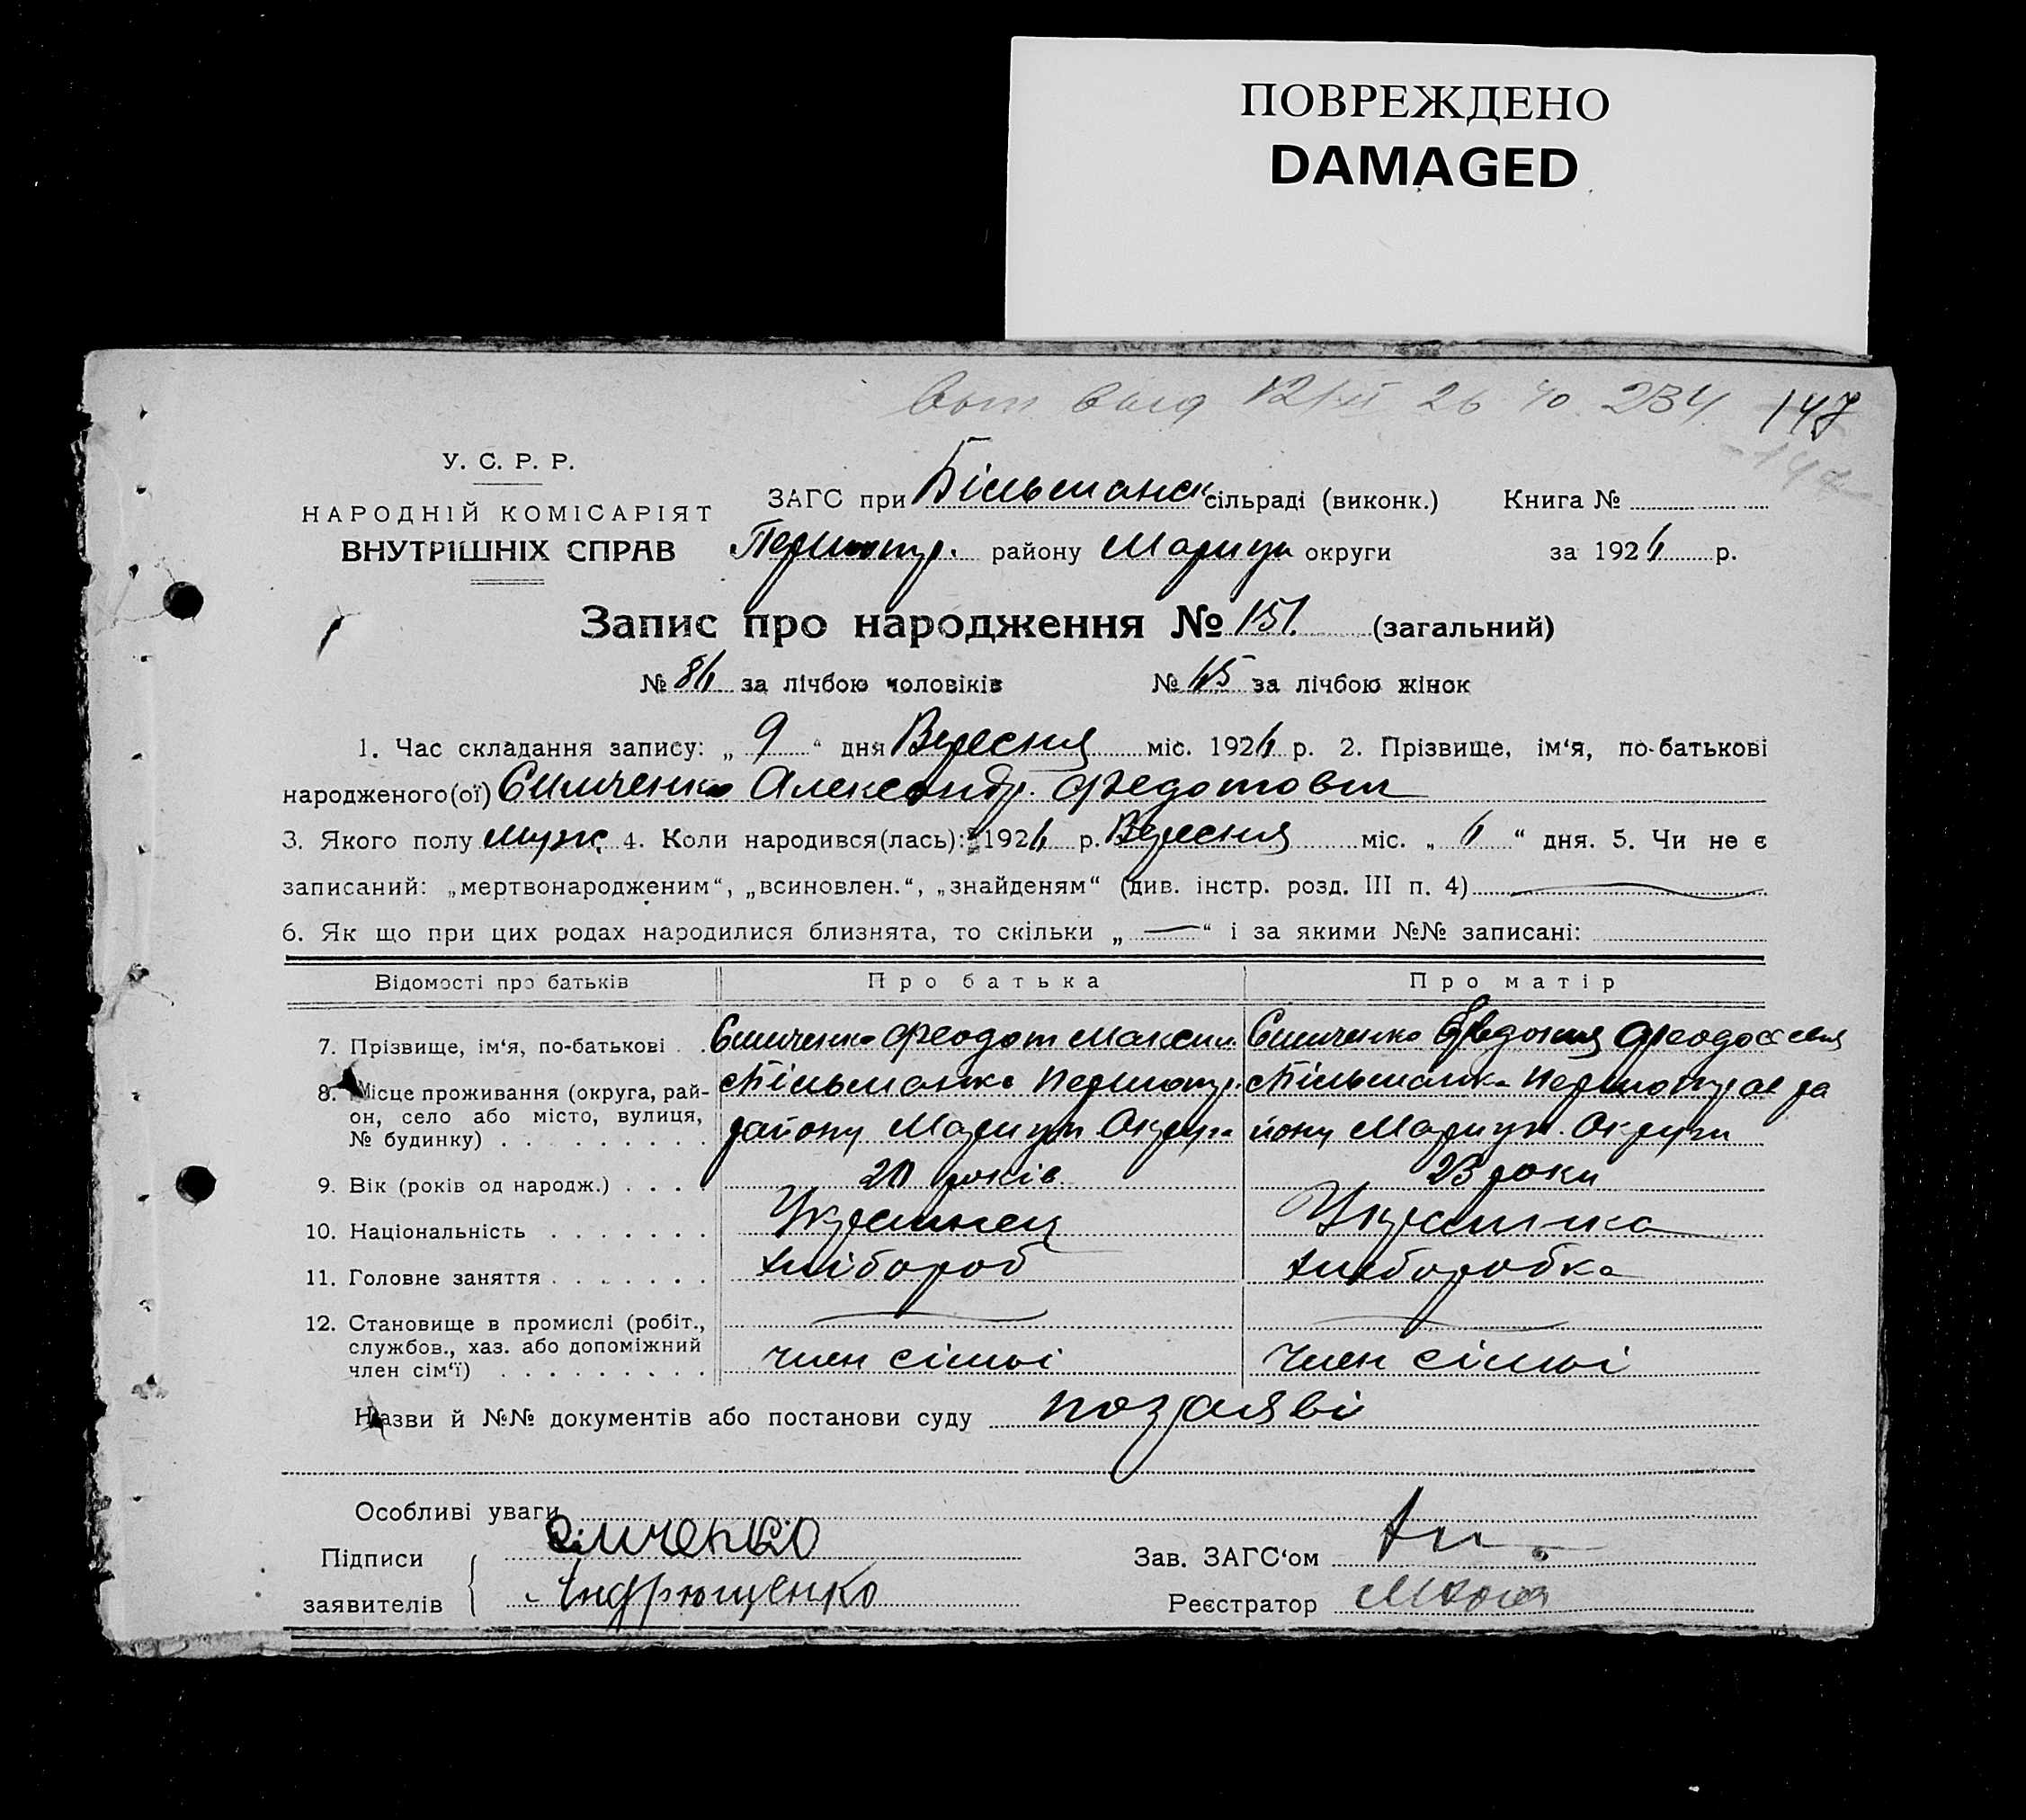 ПОВРЕЖДЕНО
DAMAGED
12/XI 26 234 147
У. С. Р. Р.
НАРОДНІЙ КОМІСАРІЯТ
ВНУТРІШНІХ СПРАВ
ЗАГС при Більманск сільраді (виконк.) Книга №
району Мариуп округи за 1926 р.
Запис про народження № 151. (загальний)
№ 86 за лічбою чоловіків № 65 за лічбою жінок
1. Час складання запису: „ 9 “ дня Вересня міс. 1926 р. 2. Прізвище, ім‘я, по-батькові
народженого(ої) Симченко Александр. Федотович
3. Якого полу муж. 4. Коли народився(лась): 1926 р. Вересня міс. „ 6 “ дня. 5. Чи не є
записаний: „мертвонародженим“, „всиновлен.“, „знайденям“ (див. інстр. розд. III п. 4)
6. Як що при цих родах народилися близнята, то скільки „ — “ і за якими №№ записані:
Відомості про батьків Про батька Про матір
7. Прізвище, ім‘я, по-батькові . . Симченко Феодот Максим. Симченко Феодосеевя
8. Місце проживання (округа, рай-
он, село або місто, вулиця,
№ будинку) . . . . . . . . .
с Більманка
району Мариуп Округи
с Більманка ра
йону Мариуп. Округи
9. Вік (років од народж.) . . . . 20 років 23 роки
10. Національність . . . . . . . Украинец Украинка
11. Головне заняття . . . . . . . хлібороб хліборобка
12. Становище в промислі (робіт.,
службов., хаз. або допоміжний
член сім‘ї) . . . . . . . . . член сімьі член сімьі
Назви й №№ документів або постанови суду по заяві
Особливі уваги
Підписи Симченко Зав. ЗАГС‘ом
заявителів Андрющенко Реєстратор